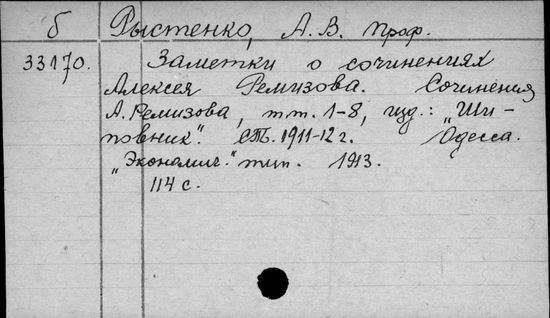 б Рыстенко, А. В. проф.
33170. Заметки о сочинениях
Алексея Ремизова. Сочинения
А. Ремизова, т.т. 1-8, изд.: „Ши-
повник". СПБ. 1911-12 г. Одесса.
„Экономич." тип. 1913.
114 с.